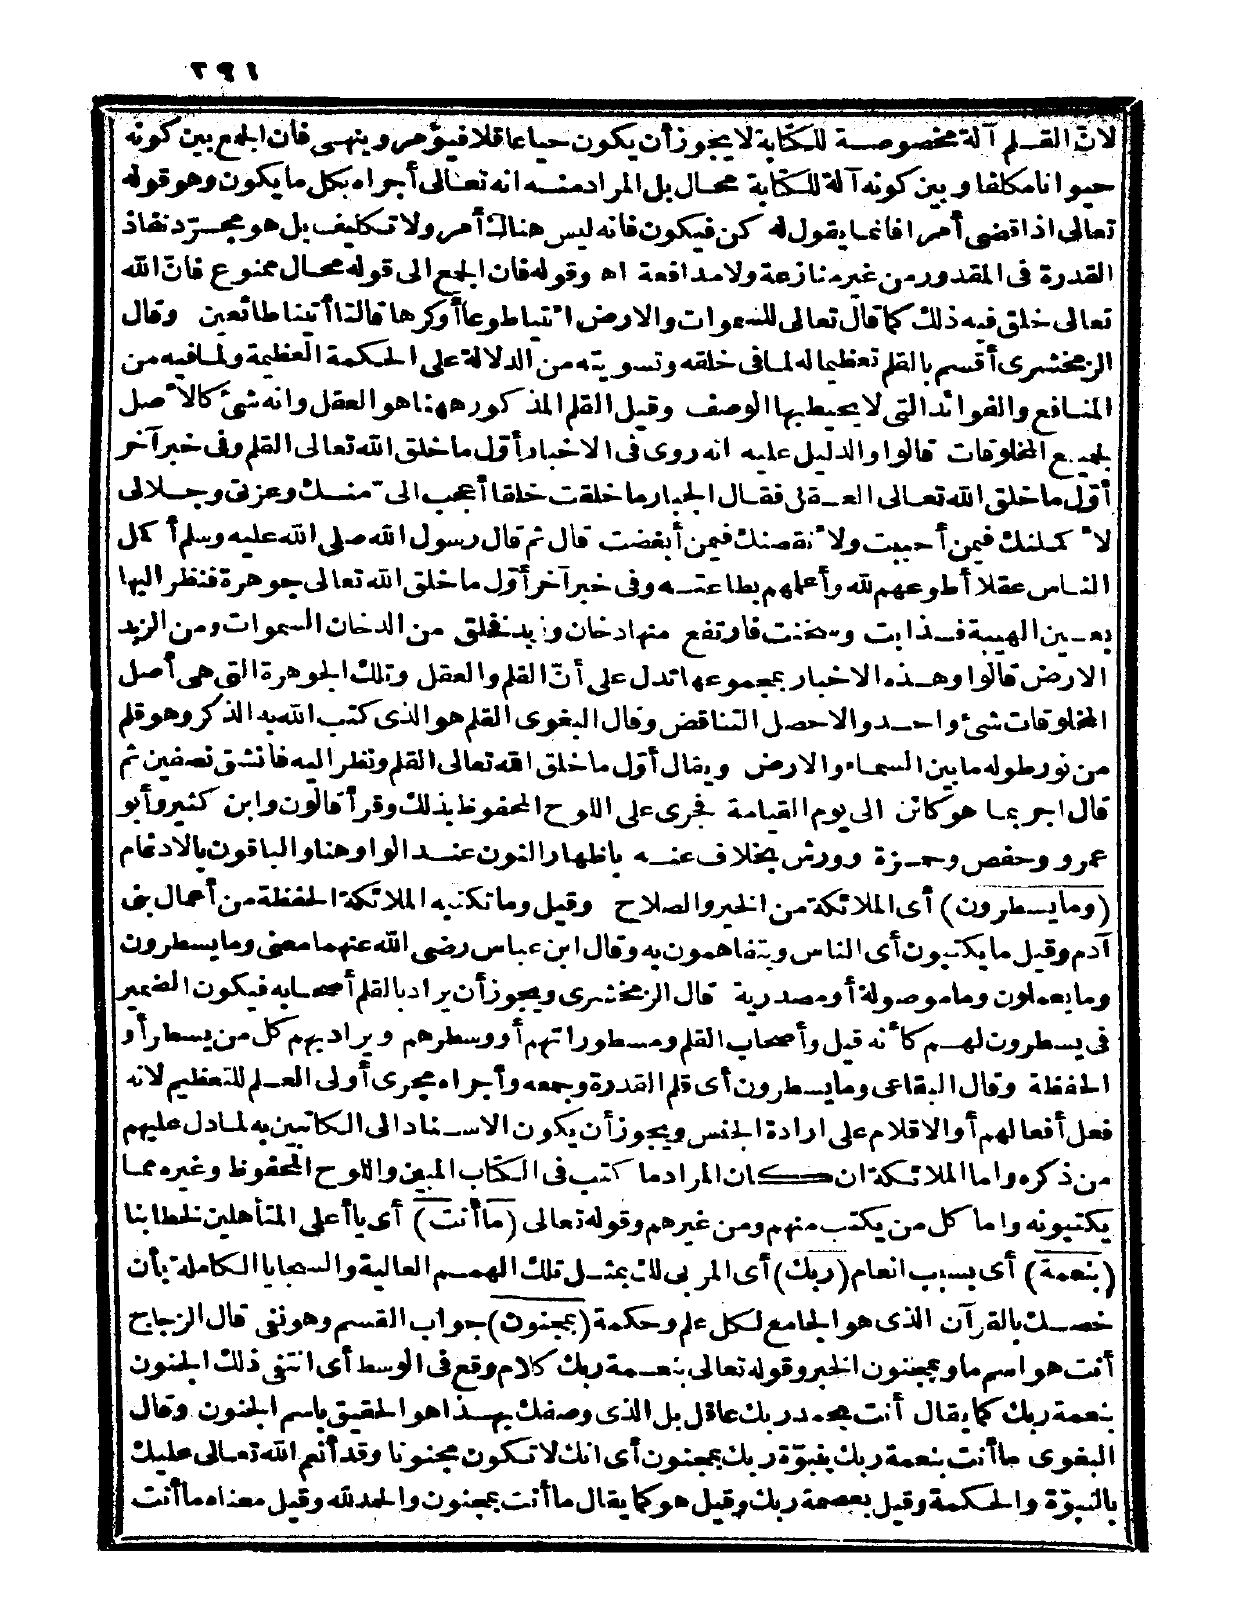 ٣٩١
لانّ القلم آلة مخصوصة للكتابة لا يجوز أن يكون حيا عاقلا فيؤمر وينهى فان الجمع بين كونه
حيوانا مكلفا وبين كونه آلة للكتابة محال بل المراد منه انه تعالى أجراه بكل ما يكون وهو قوله
تعالى اذا قضى أمرا فانما يقول له كن فيكون فانه ليس هناك أمر ولا تكليف بل هو مجرّد نفاذ
القدرة فى المقدور من غير منازعة ولا مدافعة اه وقوله فان الجمع الى قوله محال ممنوع فان الله
تعالى خلق فيه ذلك كما قال تعالى للسموات والارض ائتيا طوعا أو كرها قالتا أتينا طائعين وقال
الزمخشرى أقسم بالقلم تعظيما له لما فى خلقه وتسويته من الدلالة على الحكمة العظيمة ولما فيه من
المنافع والفوائد التى لا يحيط بها الوصف وقيل القلم المذكور ههنا هو العقل وانه شئ كالأصل
لجميع المخلوقات قالوا والدليل عليه انه روى فى الاخبار أوّل ما خلق الله تعالى القلم وفى خبر آخر
أوّل ما خلق الله تعالى العقل فقال الجبار ما خلقت خلقا أعجب الىّ منك وعزتى وجلالى
لأكملنك فيمن أحببت ولأنقصنك فيمن أبغضت قال ثم قال رسول الله صلى الله عليه وسلم أكمل
الناس عقلا أطوعهم لله وأعملهم بطاعته وفى خبر آخر أوّل ما خلق الله تعالى جوهرة فنظر اليها
بعين الهيبة فذابت وسخنت فارتفع منها دخان وزبد فخلق من الدخان السموات ومن الزبد
الارض قالوا وهذه الاخبار بمجموعها تدل على أنّ القلم والعقل وتلك الجوهرة التى هى أصل
المخلوقات شئ واحد والا حصل التناقض وقال البغوى القلم هو الذى كتب الله به الذكر وهو قلم
من نور طوله ما بين السماء والارض ويقال أوّل ما خلق الله تعالى القلم ونظر اليه فانشق نصفين ثم
قال اجر بما هو كائن الى يوم القيامة فجرى على اللوح المحفوظ بذلك وقرأ قالون وابن كثير وأبو
عمرو وحفص وحمزة وورش بخلاف عنه باظهار النون عند الواو هنا والباقون بالادغام
(وما يسطرون) أى الملائكة من الخير والصلاح وقيل وما تكتبه الملائكة الحفظة من أعمال بنى
آدم وقيل ما يكتبون أى الناس ويتفاهمون به وقال ابن عباس رضى الله عنهما معنى وما يسطرون
وما يعملون وما موصولة أو مصدرية قال الزمخشرى ويجوز أن يراد بالقلم أصحابه فيكون الضمير
فى يسطرون لهم كأنه قيل وأصحاب القلم ومسطوراتهم أو وسطرهم ويراد بهم كل من يسطر أو
الحفظة وقال البقاعى وما يسطرون أى قلم القدرة وجمعه وأجراه مجرى أولى العلم للتعظيم لانه
فعل أفعالهم أو الاقلام على ارادة الجنس ويجوز أن يكون الاسناد الى الكاتبين به لما دل عليهم
من ذكره واما الملائكة ان كان المراد ما كتب فى الكتاب المبين واللوح المحفوظ وغيره مما
يكتبونه واما كل من يكتب منهم ومن غيرهم وقوله تعالى (ما أنت) أى يا أعلى المتأهلين لخطابنا
(بنعمة) أى بسبب انعام (ربك) أى المربى لك بمثل تلك الهمم العالية والسجايا الكاملة بأن
خصك بالقرآن الذى هو الجامع لكل علم وحكمة (بمجنون) جواب القسم وهو نفى قال الزجاج
أنت هو اسم ما وبمجنون الخبر وقوله تعالى بنعمة ربك كلام وقع فى الوسط أى انتفى ذلك الجنون
بنعمة ربك كما يقال أنت بحمد ربك عاقل بل الذى وصفك بهذا هو الحقيق باسم الجنون وقال
البغوى ما أنت بنعمة ربك بنبوّة ربك بمجنون أى انك لا تكون مجنونا وقد أنعم الله تعالى عليك
بالنبوّة والحكمة وقيل بعصمة ربك وقيل هو كما يقال ما أنت بمجنون والحمد لله وقيل معناه ما أنت